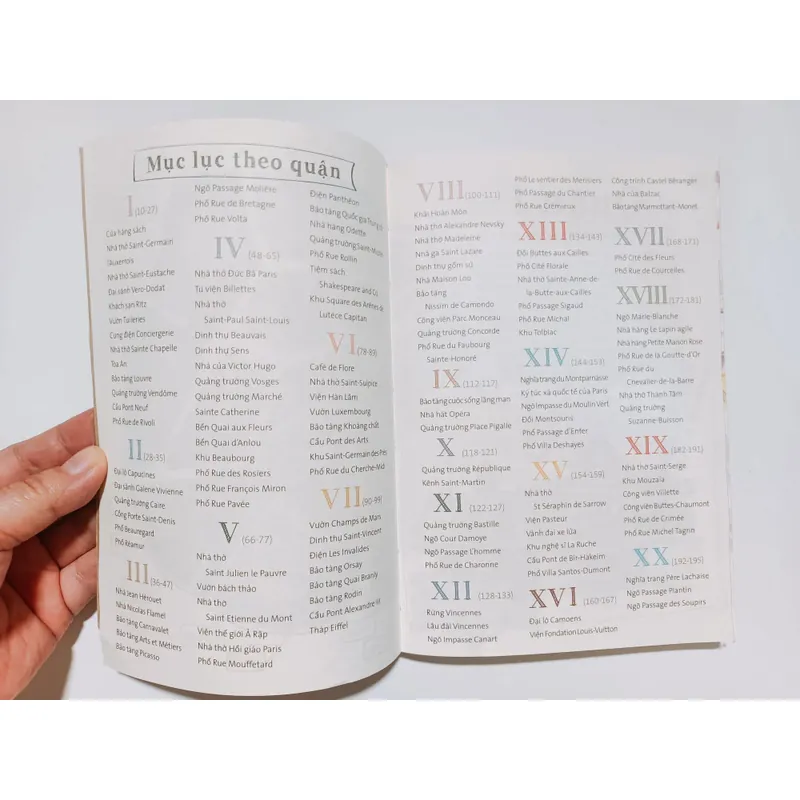 Mục lục theo quận
I (10-27)
Cửa hàng sách
Nhà thờ Saint-Germain
l'Auxerrois
Nhà thờ Saint-Eustache
Đại sảnh Vero-Dodat
Khách sạn Ritz
Vườn Tuileries
Cung điện Conciergerie
Nhà thờ Sainte Chapelle
Tòa Án
Bảo tàng Louvre
Quảng trường Vendôme
Cầu Pont Neuf
Phố Rue de Rivoli
II (28-35)
Đại lộ Capucines
Đại sảnh Galerie Vivienne
Quảng trường Caire
Cổng Porte Saint-Denis
Phố Beauregard
Phố Réamur
III (36-47)
Nhà Jean Hérouet
Nhà Nicolas Flamel
Bảo tàng Carnavalet
Bảo tàng Arts et Métiers
Bảo tàng Picasso
Ngõ Passage Molière
Phố Rue de Bretagne
Phố Rue Volta
IV (48-65)
Nhà thờ Đức Bà Paris
Tu viện Billettes
Nhà thờ
Saint-Paul Saint-Louis
Dinh thự Beauvais
Dinh thự Sens
Nhà của Victor Hugo
Quảng trường Vosges
Quảng trường Marché
Sainte Catherine
Bến Quai aux Fleurs
Bến Quai d'Anjou
Khu Beaubourg
Phố Rue des Rosiers
Phố Rue François Miron
Phố Rue Pavée
V (66-77)
Nhà thờ
Saint Julien le Pauvre
Vườn bách thảo
Nhà thờ
Saint Etienne du Mont
Viện thế giới Ả Rập
Nhà thờ Hồi giáo Paris
Phố Rue Mouffetard
Điện Panthéon
Bảo tàng Quốc gia Trung cổ
Nhà hàng Odette
Quảng trường Saint-Michel
Phố Rue Rollin
Tiệm sách
Shakespeare and Co
Khu Square des Arènes de
Lutèce Capitan
VI (78-89)
Café de Flore
Nhà thờ Saint-Sulpice
Viện Hàn Lâm
Vườn Luxembourg
Bảo tàng Khoáng chất
Cầu Pont des Arts
Khu Saint-Germain des Prés
Phố Rue du Cherche-Midi
VII (90-99)
Vườn Champs de Mars
Dinh thự Saint-Vincent
Điện Les Invalides
Bảo tàng Orsay
Bảo tàng Quai Branly
Bảo tàng Rodin
Cầu Pont Alexandre III
Tháp Eiffel
VIII (100-111)
Khải Hoàn Môn
Nhà thờ Alexandre Nevsky
Nhà thờ Madeleine
Nhà ga Saint Lazare
Dinh thự gốm sứ
Nhà Maison Loo
Bảo tàng
Nissim de Camondo
Công viên Parc Monceau
Quảng trường Concorde
Phố Rue du Faubourg
Sainte-Honoré
IX (112-117)
Bảo tàng cuộc sống lãng mạn
Nhà hát Opéra
Quảng trường Place Pigalle
X (118-121)
Quảng trường République
Kênh Saint-Martin
XI (122-127)
Quảng trường Bastille
Ngõ Cour Damoye
Ngõ Passage L'homme
Phố Rue de Charonne
XII (128-133)
Rừng Vincennes
Lâu đài Vincennes
Ngõ Impasse Canart
Phố Le sentier des Merisiers
Phố Passage du Chantier
Phố Rue Crémieux
XIII (134-143)
Đồi Buttes aux Cailles
Phố Cité Florale
Nhà thờ Sainte-Anne-de-
la-Butte-aux-Cailles
Phố Passage Sigaud
Phố Rue Michal
Khu Tolbiac
XIV (144-153)
Nghĩa trang du Montparnasse
Ký túc xá quốc tế của Paris
Ngõ Impasse du Moulin Vert
Đồi Montsouris
Phố Passage d'Enfer
Phố Villa Deshayes
XV (154-159)
Nhà thờ
St Séraphin de Sarrow
Viện Pasteur
Vành đai xe lửa
Khu nghệ sĩ La Ruche
Cầu Pont de Bir-Hakeim
Phố Villa Santos-Dumont
XVI (160-167)
Đại lộ Camoens
Viện Fondation Louis-Vuitton
Công trình Castel Béranger
Nhà của Balzac
Bảo tàng Marmottant-Monet
XVII (168-171)
Phố Cité des Fleurs
Phố Rue de Courcelles
XVIII (172-181)
Ngõ Marie-Blanche
Nhà hàng Le Lapin agile
Nhà hàng Petite Maison Rose
Phố Rue de la Goutte-d'Or
Phố Rue du
Chevalier-de-la-Barre
Nhà thờ Thánh Tâm
Quảng trường
Suzanne-Buisson
XIX (182-191)
Nhà thờ Saint-Serge
Khu Mouzaïa
Công viên Villette
Công viên Buttes-Chaumont
Phố Rue de Crimée
Phố Rue Michel Tagrin
XX (192-195)
Nghĩa trang Père Lachaise
Ngõ Passage Plantin
Ngõ Passage des Soupirs